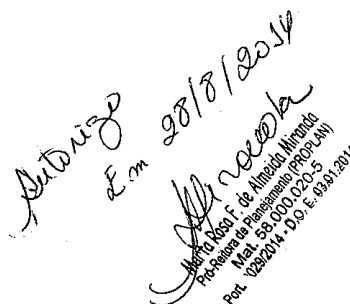 Autorizo
Em 28/8/2014
Marta Rosa F. de Almeida Miranda
Pró-Reitora de Planejamento (PROPLAN)
Mat. 58.000.020-5
Port. 1029/2014 - D.O.E. 03.01.2014